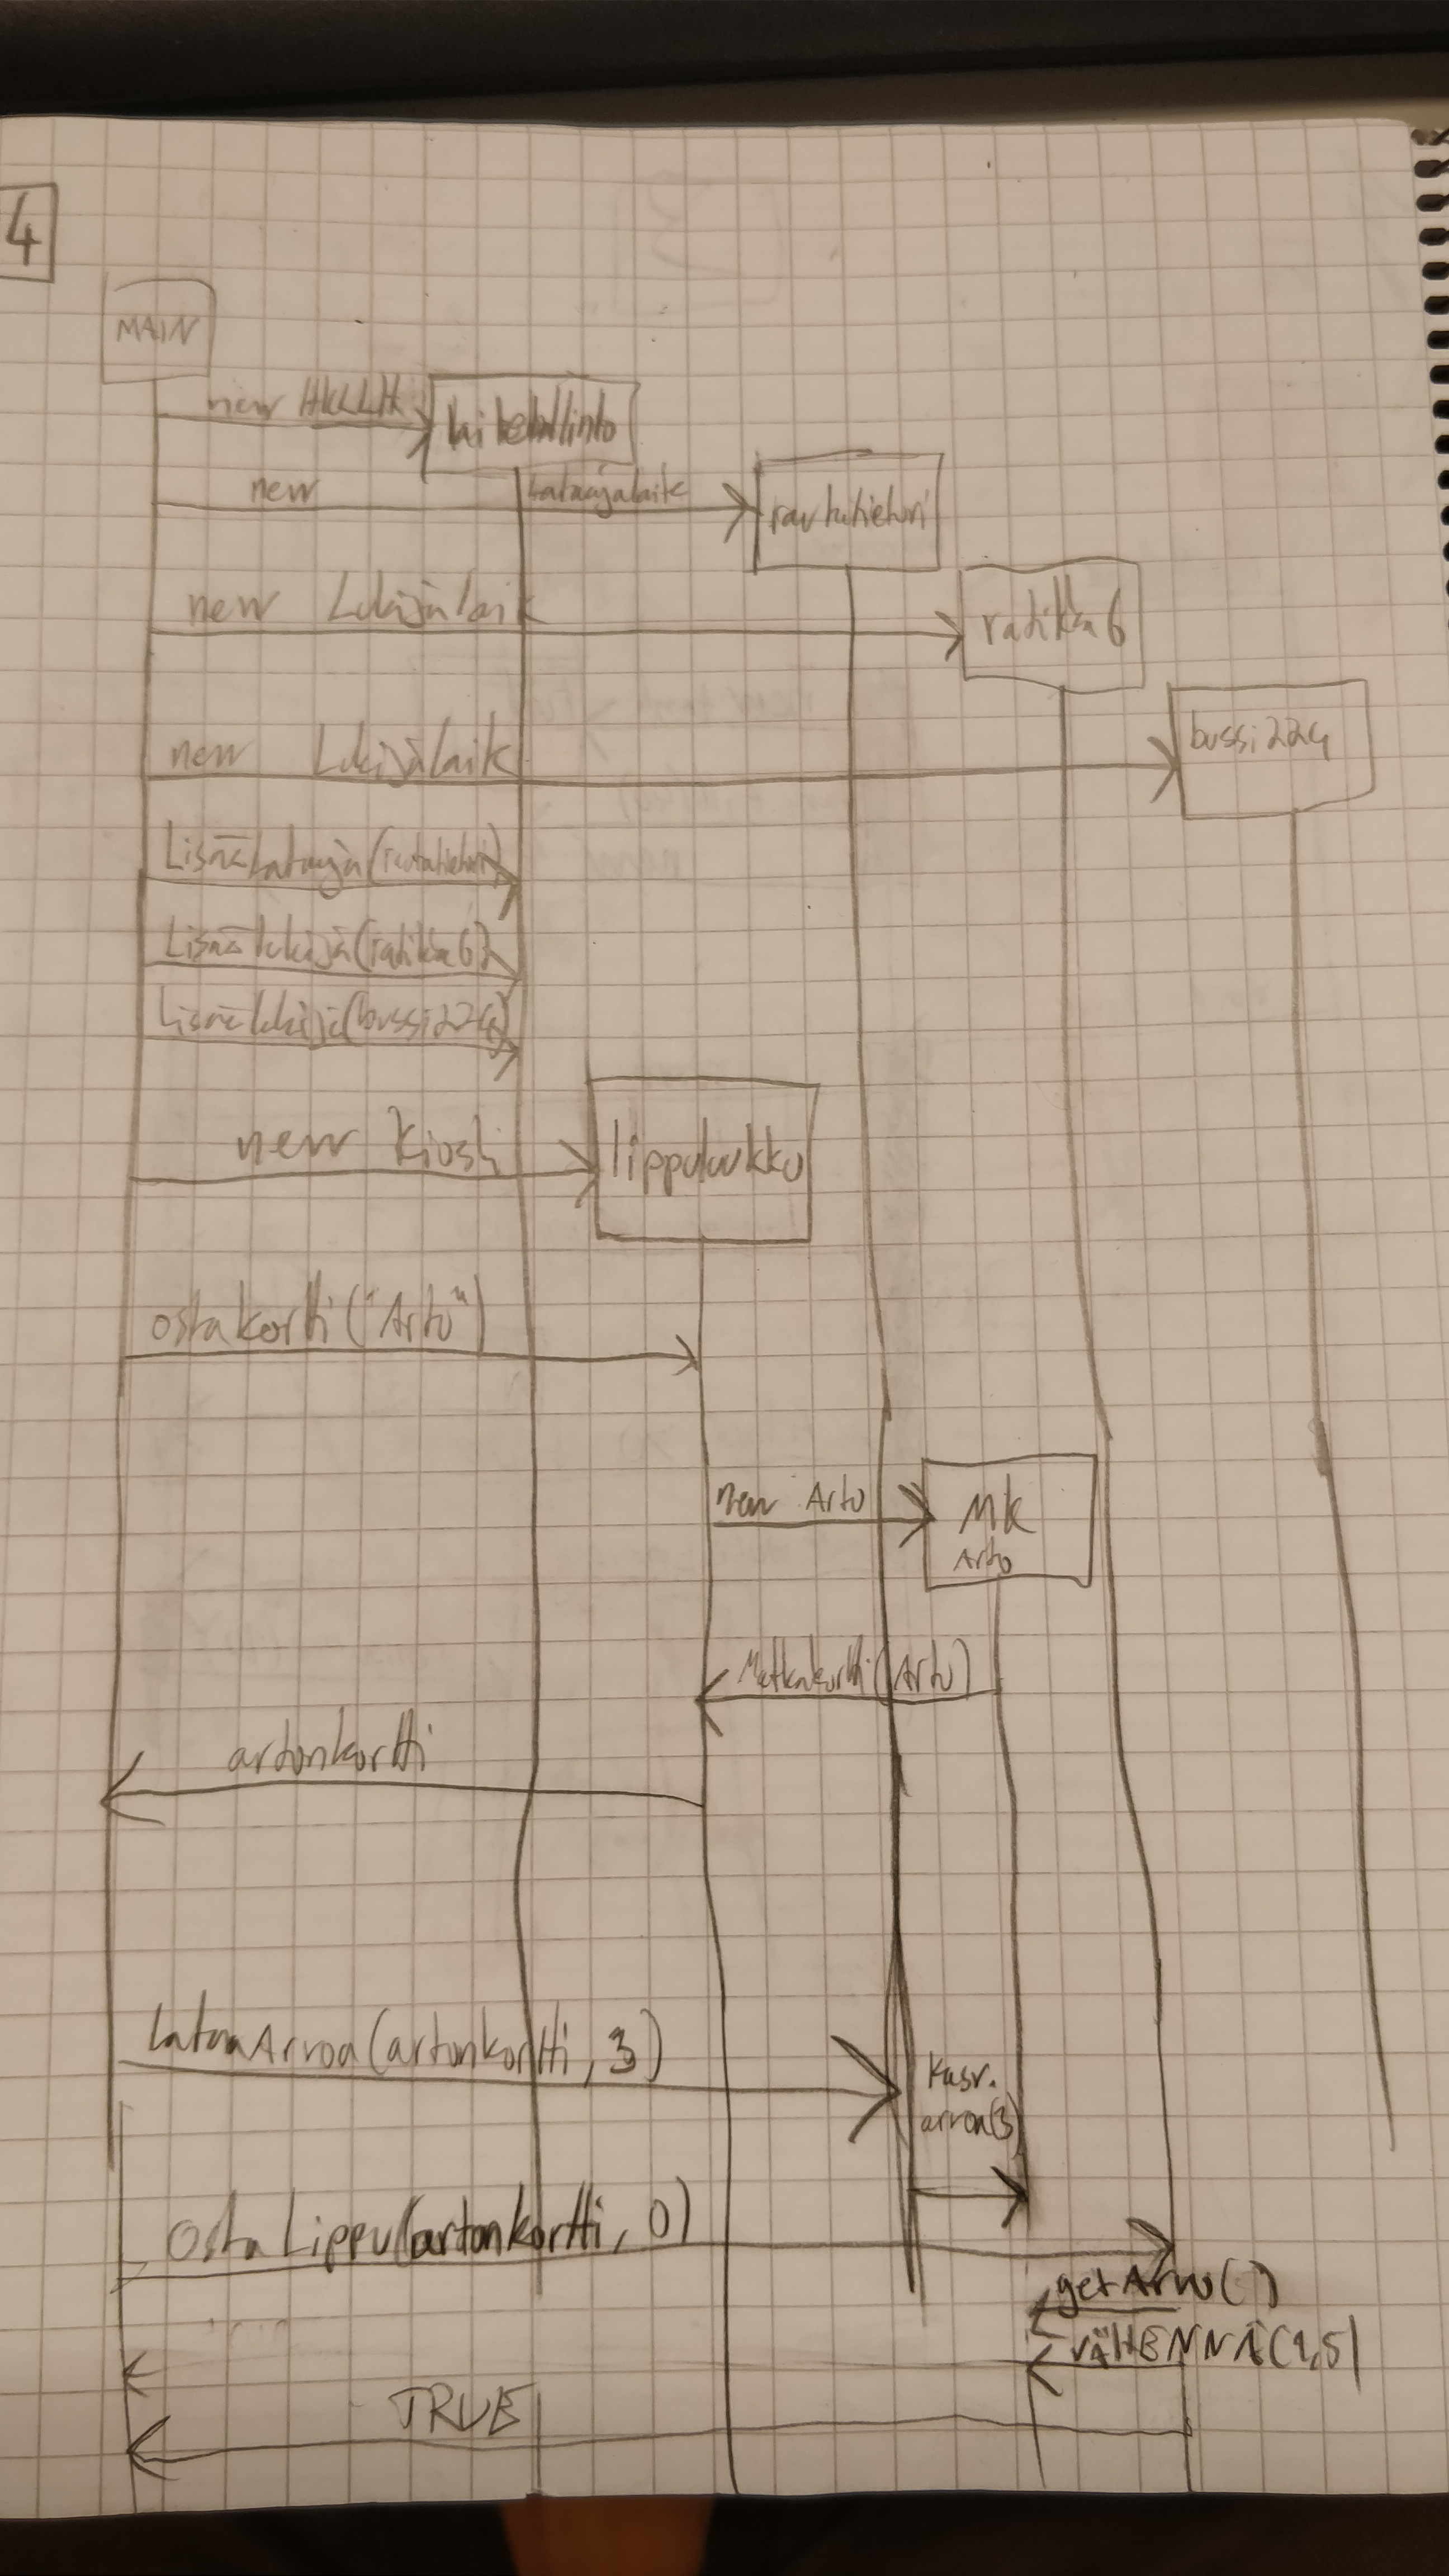 4
MAIN
new HKLLH
laitehallinto
new Lataajalaite
rautatietori
new Lukijalaik
ratikka6
new Lukijalaik
bussi224
Lisaalataaja(rautatietori)
Lisaalukija(ratikka6)
Lisaalukija(bussi224)
new Kioski
lippuluukku
ostakortti("Arto")
new Arto
MK
Arto
Matkakortti(Arto)
artonkortti
LataaArvoa(artonkortti, 3)
Kasv.
arvoa(3)
OstaLippu(artonkortti, 0)
getArvo()
VÄHENNÄ(1,5)
TRUE